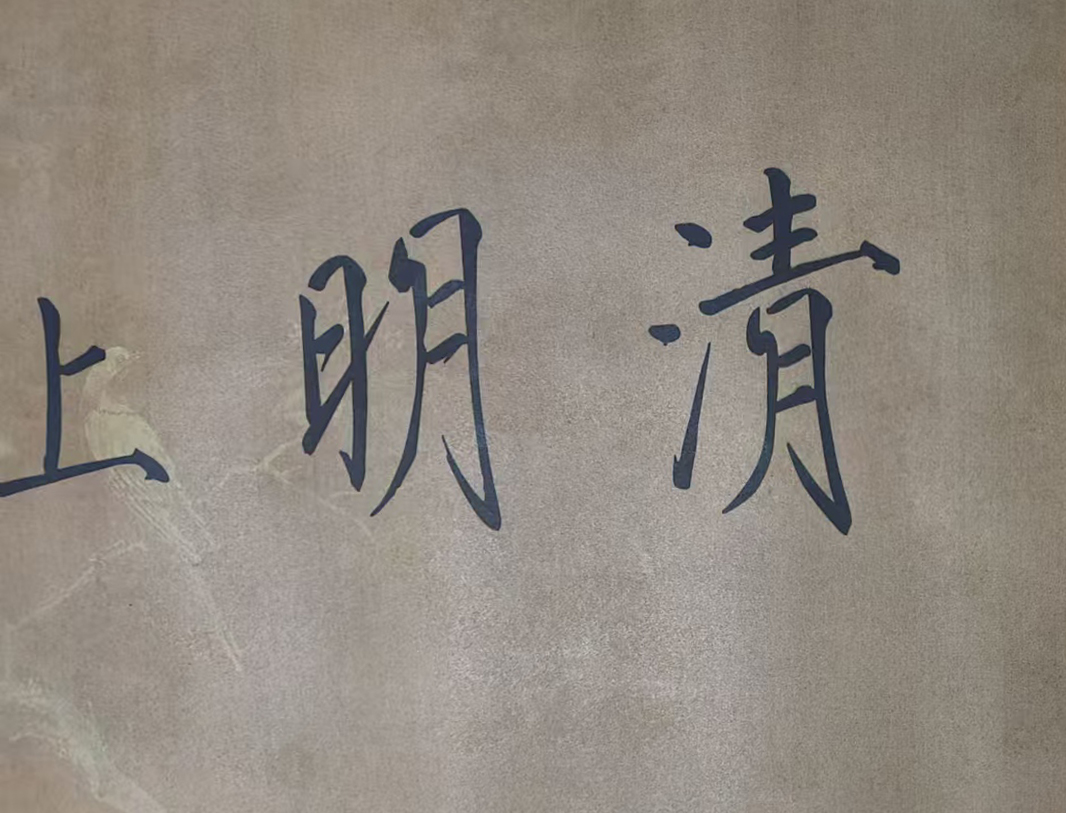 清明上